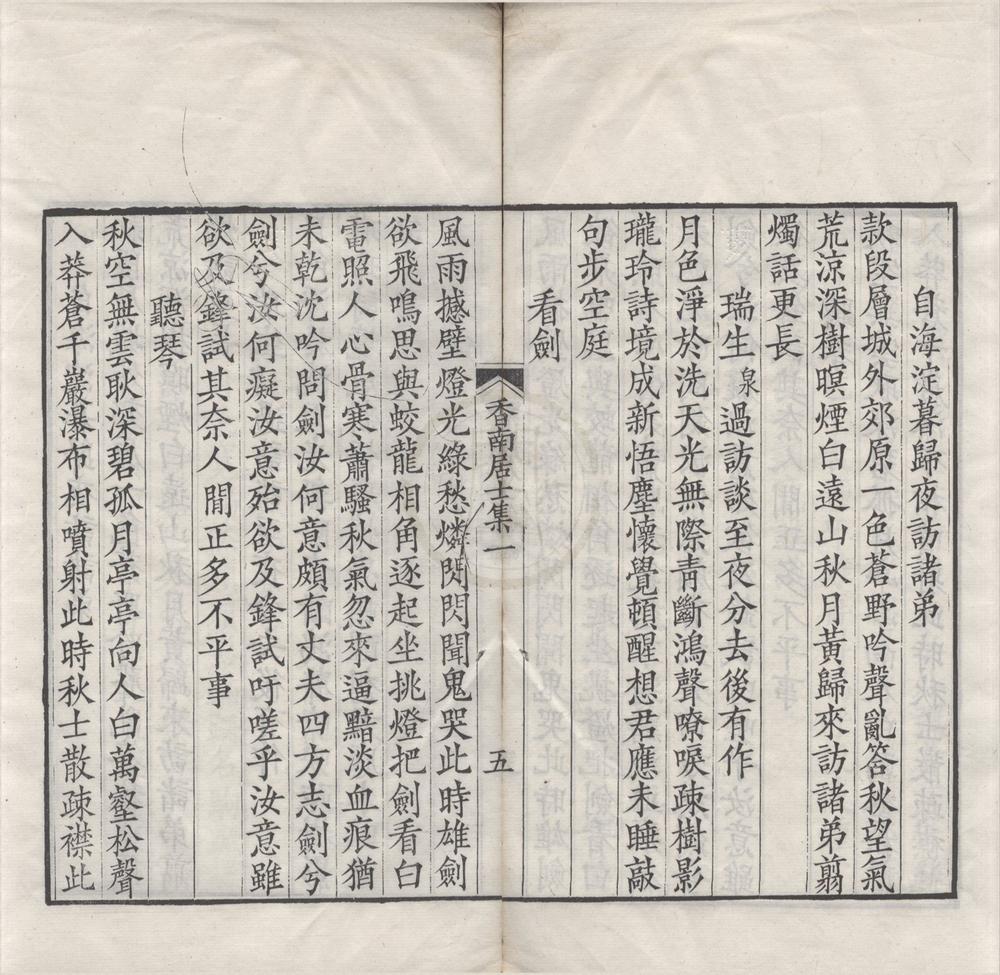 自海淀暮歸夜訪諸弟
款段層城外郊原一色蒼野吟聲亂答秋望氣
荒涼深樹暝煙白遠山秋月黃歸來訪諸弟翦
燭話更長
瑞生泉過訪談至夜分去後有作
月色淨於洗天光無際靑斷鴻聲嘹唳疎樹影
瓏玲詩境成新悟塵懷覺頓醒想君應未睡敲
句步空庭
看劍
香南居士集一
五
風雨撼壁燈光綠愁燐閃閃聞鬼哭此時雄劍
欲飛鳴思與蛟龍相角逐起坐挑燈把劍看白
電照人心骨寒蕭騷秋氣忽來逼黯淡血痕猶
未乾沈吟問劍汝何意頗有丈夫四方志劍兮
劍兮汝何癡汝意殆欲及鋒試吁嗟乎汝意雖
欲及鋒試其奈人閒正多不平事
聽琴
秋空無雲耿深碧孤月亭亭向人白萬壑松聲
入莽蒼千巖瀑布相噴射此時秋士散疎襟此